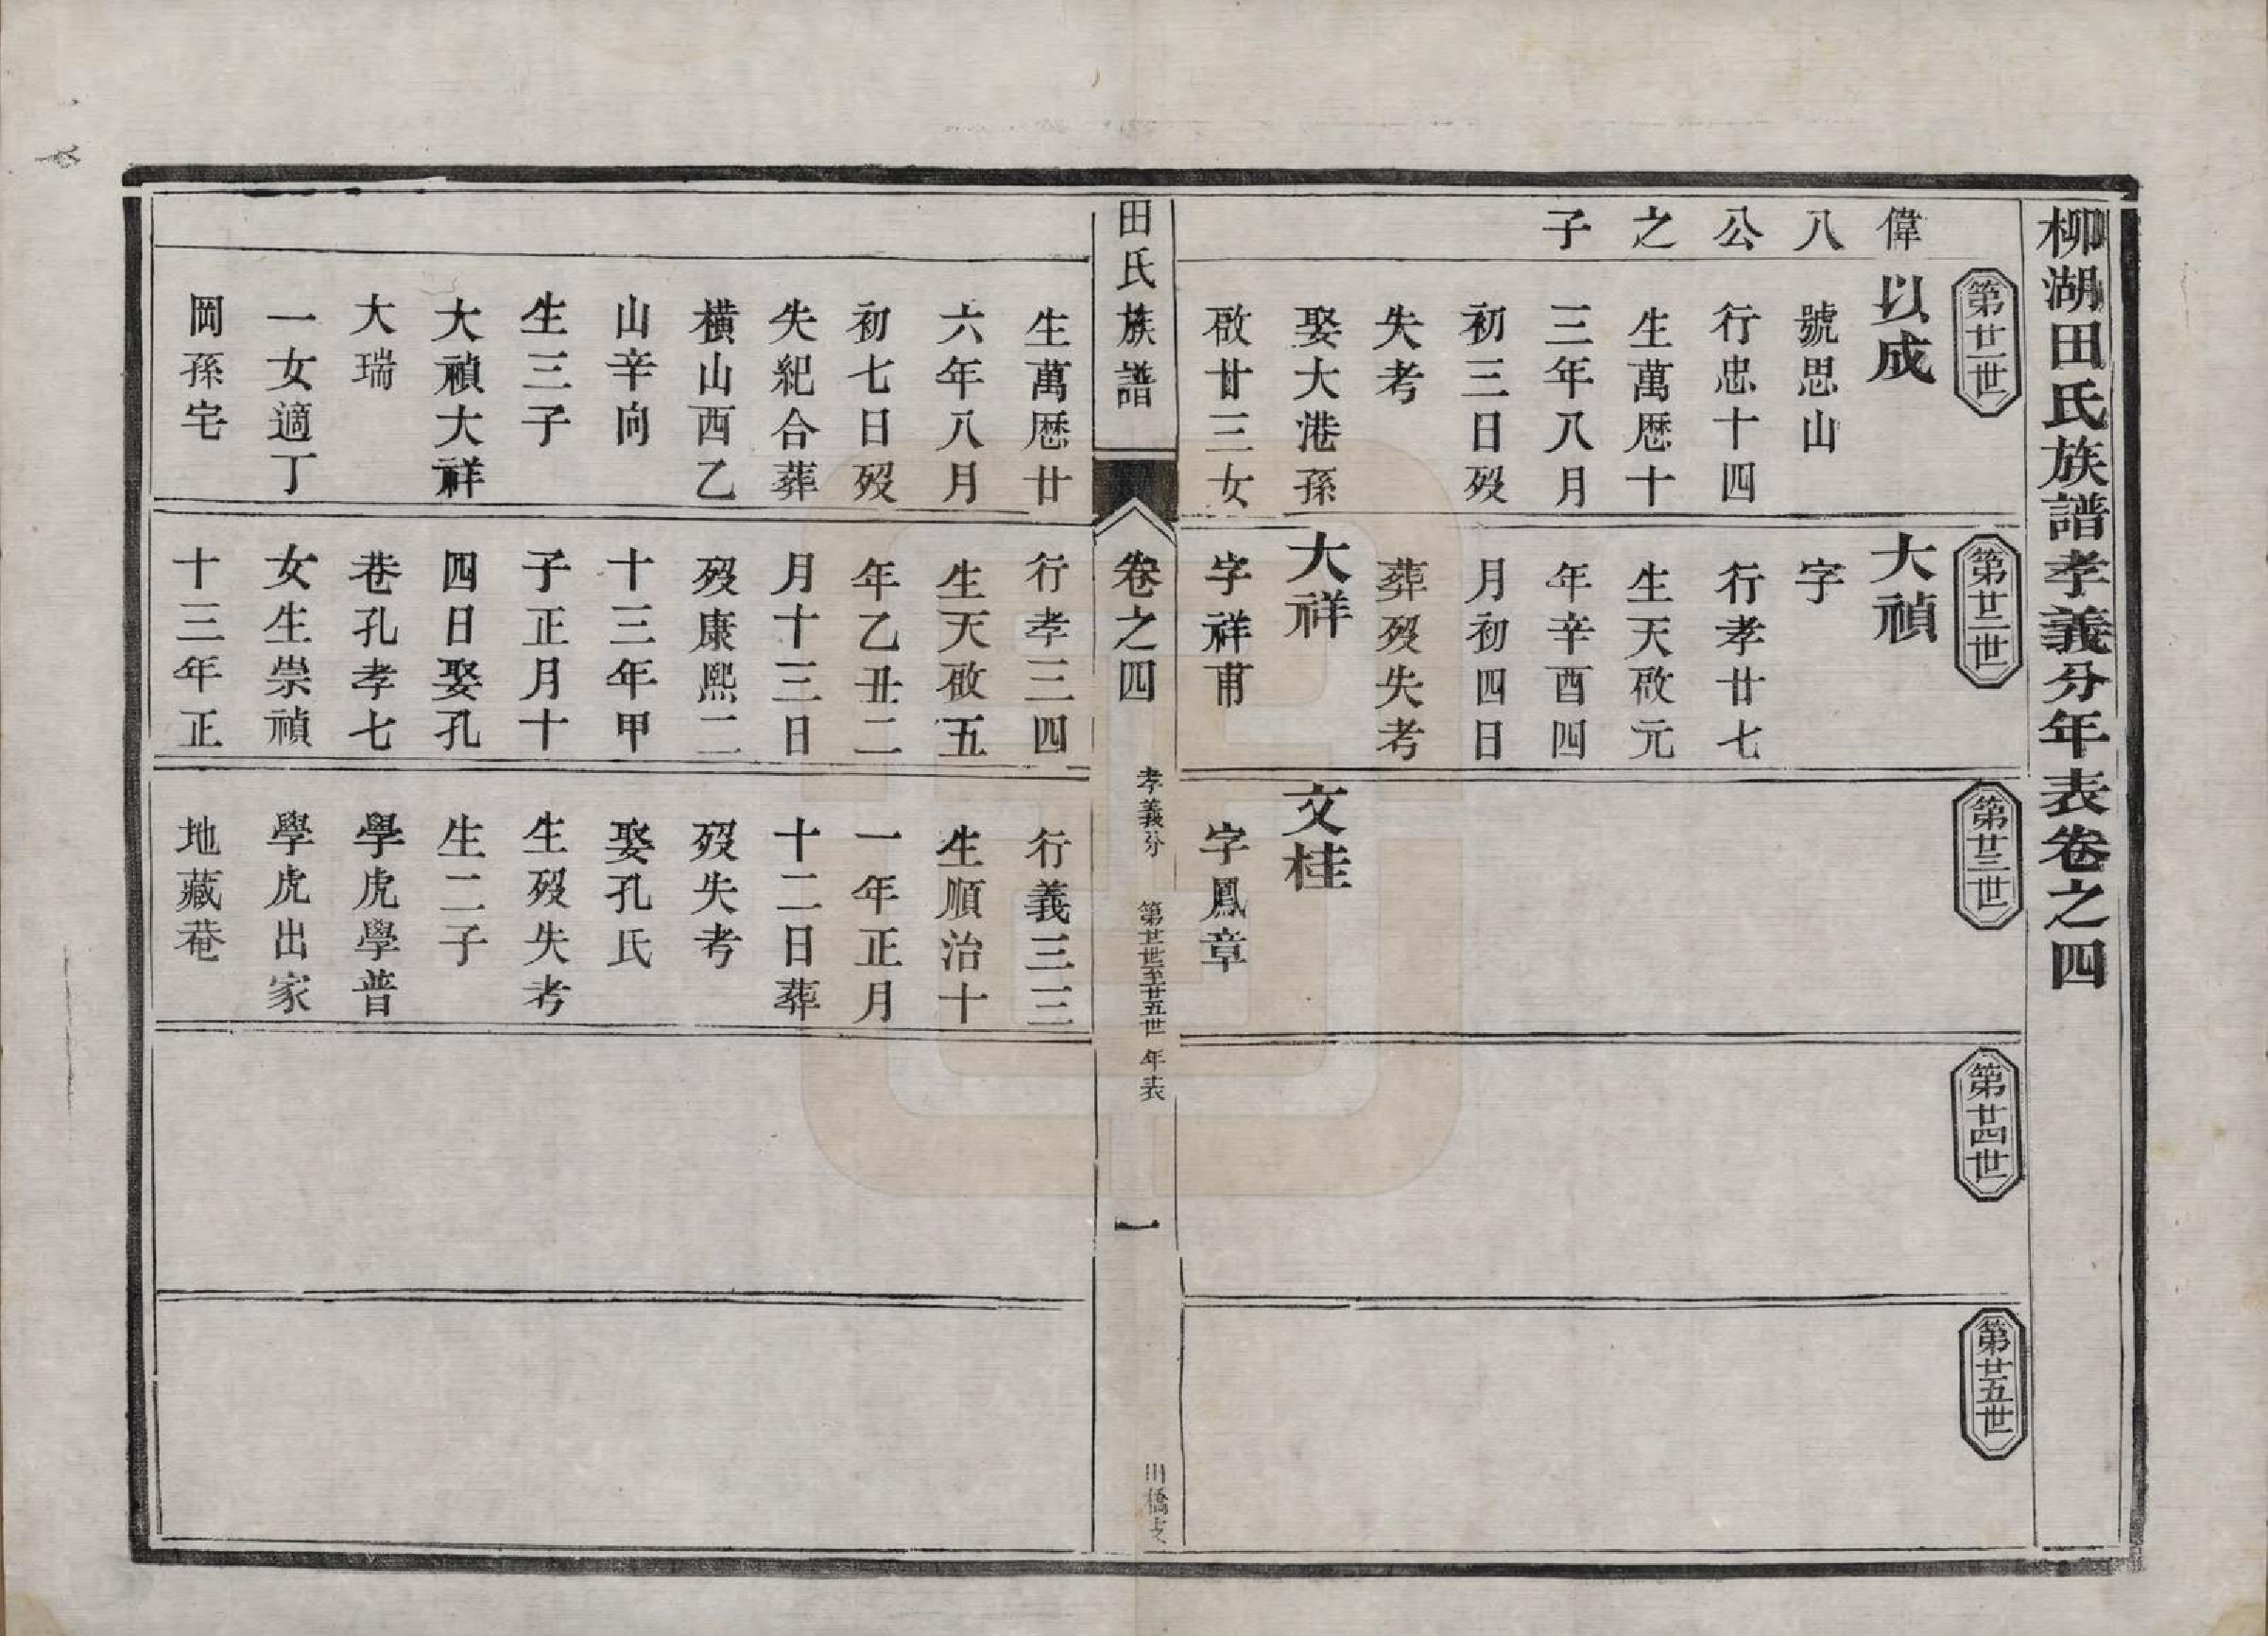 柳湖田氏族譜孝義分年表卷之四
第廿一世
偉
八
公
之
子
以成
號思山
行忠十四
生萬厯十
三年八月
初三日歿
失考
娶大港孫
啟廿三女
生萬厯廿
六年八月
初七日歿
失紀合葬
橫山西乙
山辛向
生三子
大禎大祥
大瑞
一女適丁
岡孫宅
第廿二世
大禎
字
行孝廿七
生天啟元
年辛酉四
月初四日
葬歿失考
大祥
字祥甫
行孝三四
生天啟五
年乙丑二
月十三日
歿康熙二
十三年甲
子正月十
四日娶孔
巷孔孝七
女生崇禎
十三年正
第廿三世
文桂
字鳳章
行義三三
生順治十
一年正月
十二日葬
歿失考
娶孔氏
生歿失考
生二子
學虎學普
學虎出家
地藏菴
第廿四世
第廿五世
田氏族譜
卷之四
孝義分
第廿一世至廿五世
年表
一